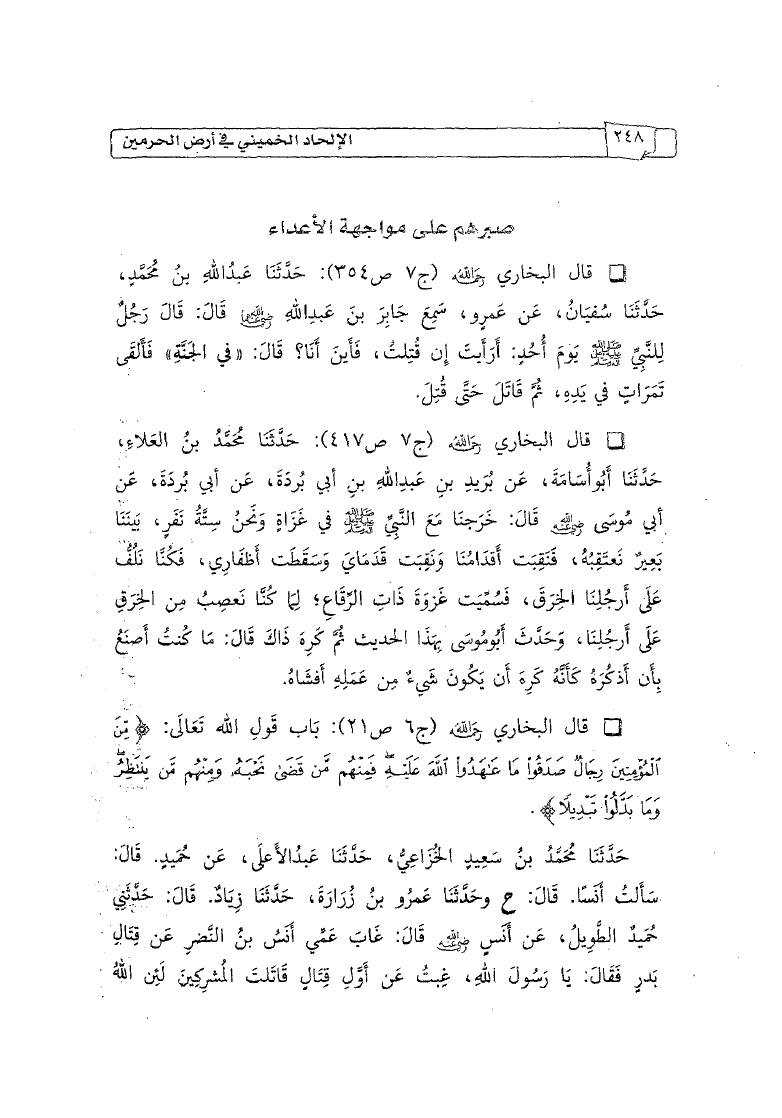 ٢٤٨ الإلحاد الخميني في أرض الحرمين
صبرهم على مواجهة الأعداء
❏ قال البخاري رحمه الله (ج٧ ص٣٥٤): حَدَّثَنَا عَبدُاللهِ بنُ مُحَمَّدٍ،
حَدَّثَنَا سُفيَانُ، عَن عَمرٍو، سَمِعَ جَابِرَ بنَ عَبدِاللهِ رضي الله عنهما قَالَ: قَالَ رَجُلٌ
لِلنَّبِيِّ ﷺ يَومَ أُحُدٍ: أَرَأَيتَ إِن قُتِلتُ، فَأَينَ أَنَا؟ قَالَ: «في الجَنَّةِ» فَأَلقَى
تَمَرَاتٍ في يَدِهِ، ثُمَّ قَاتَلَ حَتَّى قُتِلَ.
❏ قال البخاري رحمه الله (ج٧ ص٤١٧): حَدَّثَنَا مُحَمَّدُ بنُ العَلاءِ،
حَدَّثَنَا أَبُوأُسَامَةَ، عَن بُرَيدِ بنِ عَبدِاللهِ بنِ أَبي بُردَةَ، عَن أَبي بُردَةَ، عَن
أَبي مُوسَى رضي الله عنه قَالَ: خَرَجنَا مَعَ النَّبِيِّ ﷺ في غَزَاةٍ وَنَحنُ سِتَّةُ نَفَرٍ، بَينَنَا
بَعِيرٌ نَعتَقِبُهُ، فَنَقِبَت أَقدَامُنَا وَنَقِبَت قَدَمَايَ وَسَقَطَت أَظفَارِي، فَكُنَّا نَلُفُّ
عَلَى أَرجُلِنَا الخِرَقَ، فَسُمِّيَت غَزوَةَ ذَاتِ الرِّقَاعِ؛ لِمَا كُنَّا نَعصِبُ مِن الخِرَقِ
عَلَى أَرجُلِنَا، وَحَدَّثَ أَبُومُوسَى بِهَذَا الحديث ثُمَّ كَرِهَ ذَاكَ قَالَ: مَا كُنتُ أَصنَعُ
بِأَن أَذكُرَهُ كَأَنَّهُ كَرِهَ أَن يَكُونَ شَيءٌ مِن عَمَلِهِ أَفشَاهُ.
❏ قال البخاري رحمه الله (ج٦ ص٢١): بَاب قَولِ الله تَعَالَى: ﴿مِّنَ
ٱلْمُؤْمِنِينَ رِجَالٌ صَدَقُوا۟ مَا عَـٰهَدُوا۟ ٱللَّهَ عَلَيْهِ ۖ فَمِنْهُم مَّن قَضَىٰ نَحْبَهُۥ وَمِنْهُم مَّن يَنتَظِرُ ۖ
وَمَا بَدَّلُوا۟ تَبْدِيلًا﴾.
حَدَّثَنَا مُحَمَّدُ بنُ سَعِيدٍ الخُزَاعِيُّ، حَدَّثَنَا عَبدُالأَعلَى، عَن حُمَيدٍ. قَالَ:
سَأَلتُ أَنَسًا. قَالَ: ح وحَدَّثَنَا عَمرُو بنُ زُرَارَةَ، حَدَّثَنَا زِيَادٌ. قَالَ: حَدَّثَنِي
حُمَيدٌ الطَّوِيلُ، عَن أَنَسٍ رضي الله عنه قَالَ: غَابَ عَمِّي أَنَسُ بنُ النَّضرِ عَن قِتَالِ
بَدرٍ فَقَالَ: يَا رَسُولَ اللهِ، غِبتُ عَن أَوَّلِ قِتَالٍ قَاتَلتَ المُشرِكِينَ لَئِن اللهُ